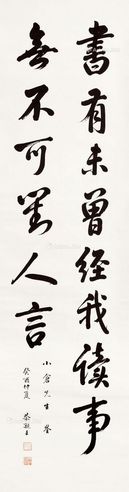 書有未曾經我读事
無不可對人言
小倉先生鉴
癸酉仲夏